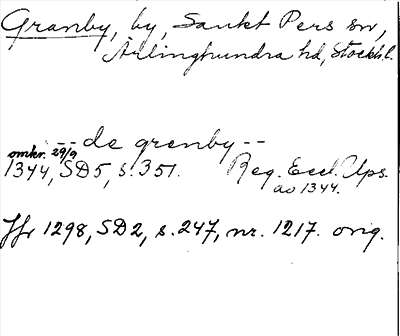 Granby, by, Sankt Pers sn,
Ärlinghundra hd, Stockh.l.
-- de grenby --
omkr. 29/9
1344, SD5, s. 351. Reg. Eccl. Ups.
av 1344.
Jfr 1298, SD2, s. 247, nr. 1217. orig.